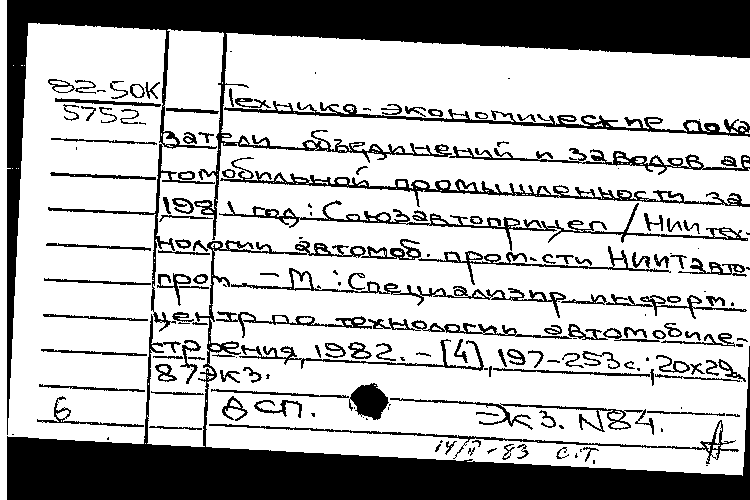 82-50К
5752
Технико-экономические пока
затели объединений и заводов ав
томобильной промышленности за
1981 год: Союзавтоприцеп / НИИ тех-
нологии автомоб. пром-сти НИИТавто-
пром. – М. : Специализир. информ.
центр по технологии автомобиле-
строения, 1982. – [4], 197-253с.; 20х29.
87экз.
6 ДСП. Экз. N84.
14/V-83 С.Т.